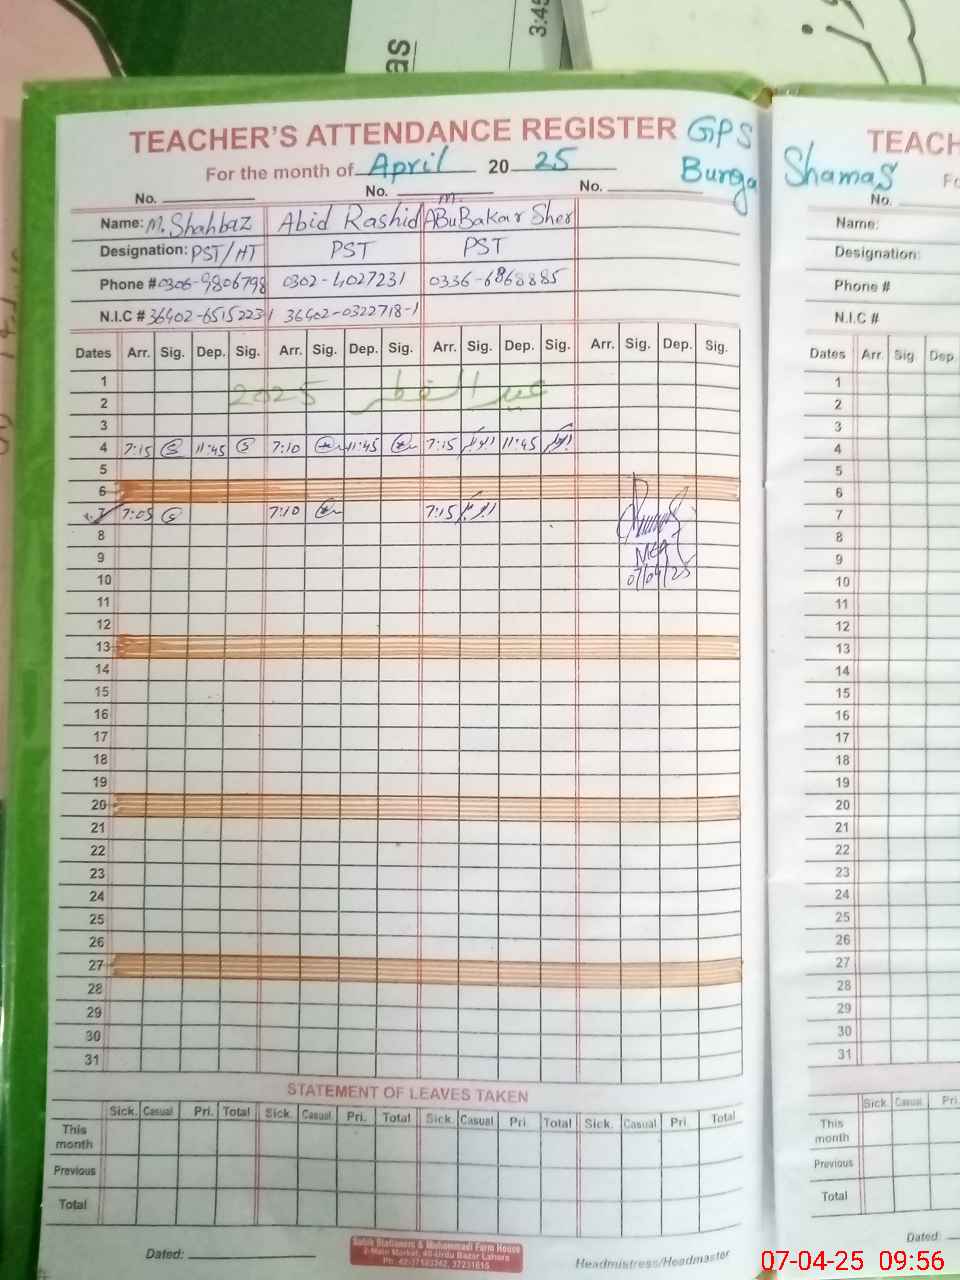 3:45
as
TEACHER'S ATTENDANCE REGISTER GPS
For the month of April 20 25 Burga Shamas
No. No. No.
Name: M. Shahbaz Abid Rashid M. ABuBakar Sher
Designation: PST/HT PST PST
Phone # 0306-9806798 0302-4027231 0336-6868885
N.I.C # 36402-6515223-1 36402-0322718-1
Dates Arr. Sig. Dep. Sig. Arr. Sig. Dep. Sig. Arr. Sig. Dep. Sig. Arr. Sig. Dep. Sig.
1
عید الفطر 2025
2
3
4 7:15 11:45 7:10 11:45 7:15 11:45
5
6
7 7:05 7:10 7:15
8
9 MEA
10 07/04/25
11
12
13
14
15
16
17
18
19
20
21
22
23
24
25
26
27
28
29
30
31
STATEMENT OF LEAVES TAKEN
Sick. Casual Pri. Total Sick. Casual Pri. Total Sick. Casual Pri. Total Sick. Casual Pri. Total
This month
Previous
Total
Dated:
Headmistress/Headmaster
2-Main Market, 40-Urdu Bazar Lahore
TEACH
Fo
No.
Name:
Designation:
Phone #
N.I.C #
Dates Arr. Sig. Dep.
1
2
3
4
5
6
7
8
9
10
11
12
13
14
15
16
17
18
19
20
21
22
23
24
25
26
27
28
29
30
31
Sick. Casual Pri.
This month
Previous
Total
Dated:
07-04-25 09:56